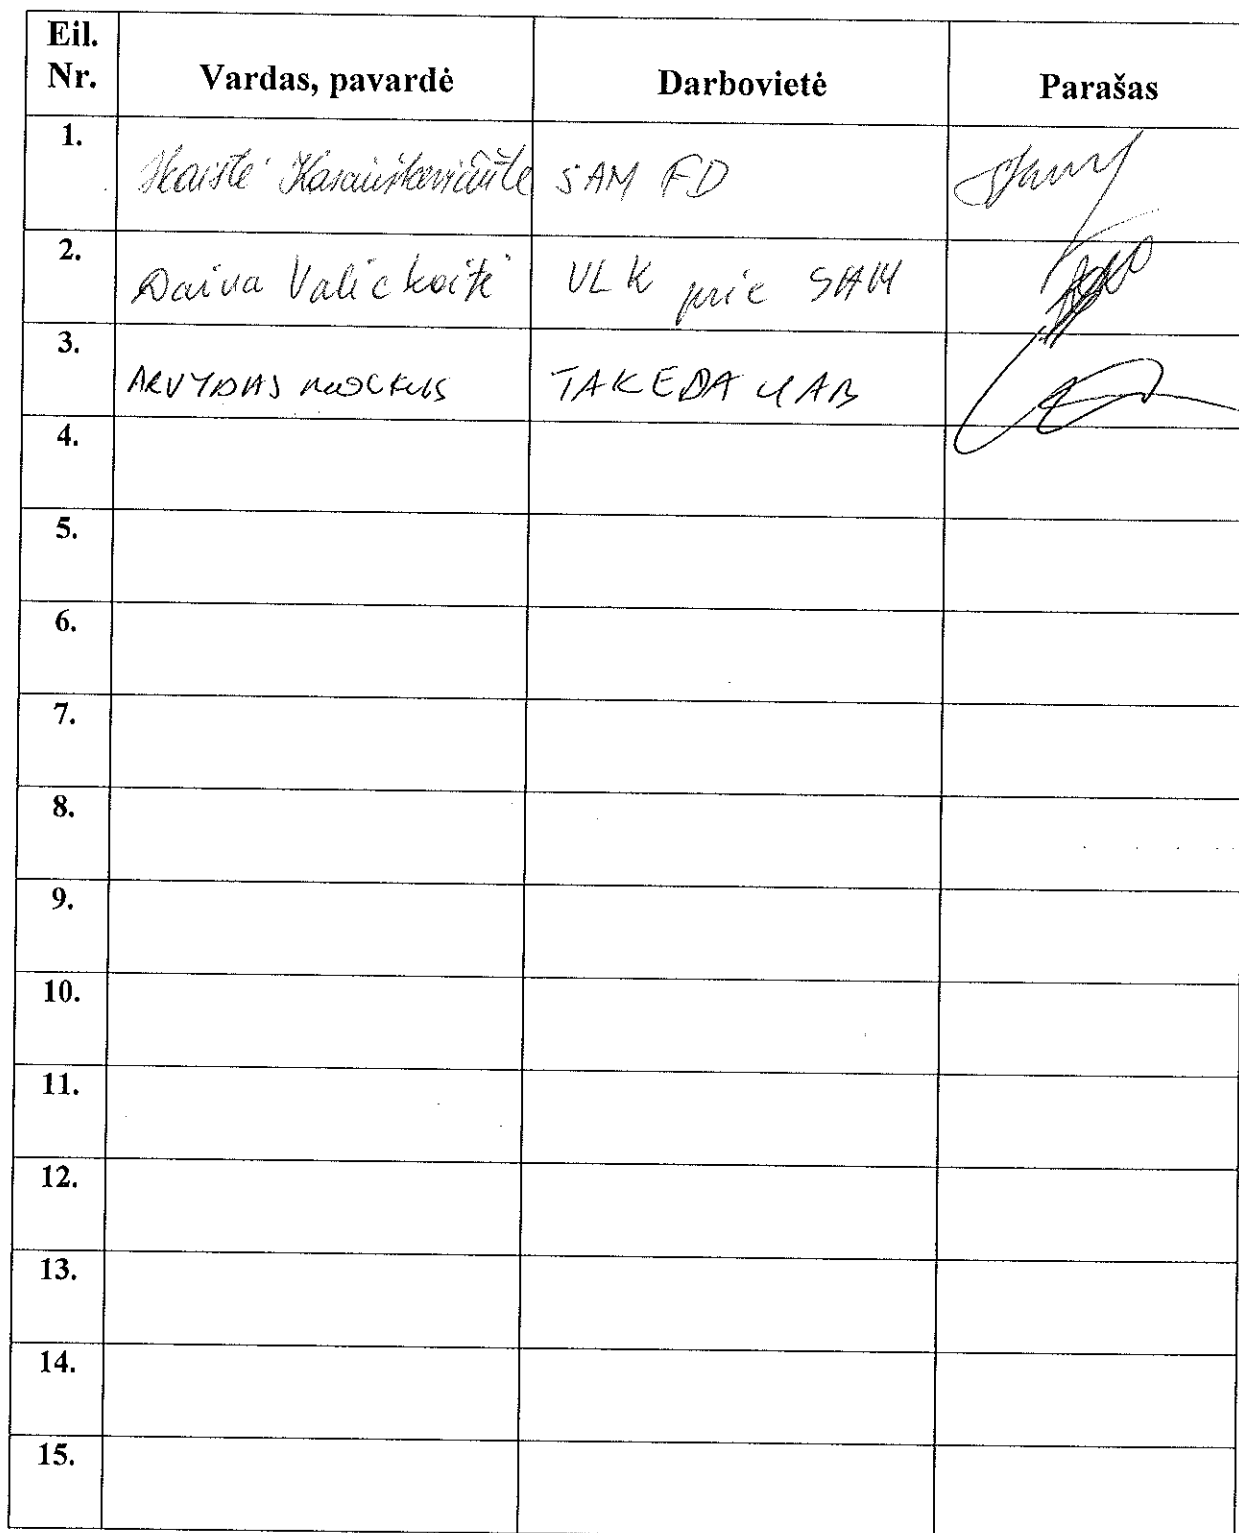 Eil. Nr. Vardas, pavardė Darbovietė Parašas
1. Skaistė SAM FD
2. Daiva Valickaitė VLK prie SAM
3. ARVYDAS MOCKUS TAKEDA UAB
4.
5.
6.
7.
8.
9.
10.
11.
12.
13.
14.
15.